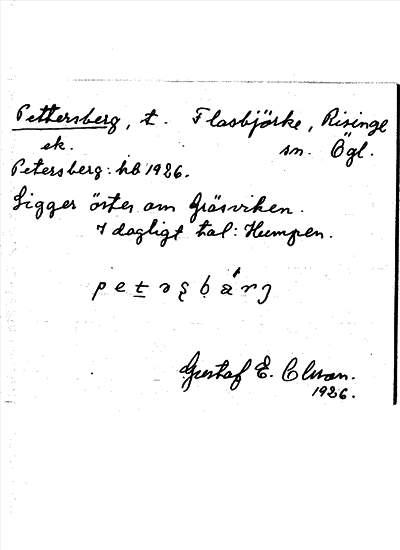 Pettersberg, t. Flasbjörke, Risinge
ek. sn. Ögl.
Petersberg: hb 1926.
Ligger öster om Gräsviken.
I dagligt tal: Humpen.
Gustaf E. Olsson.
1926.